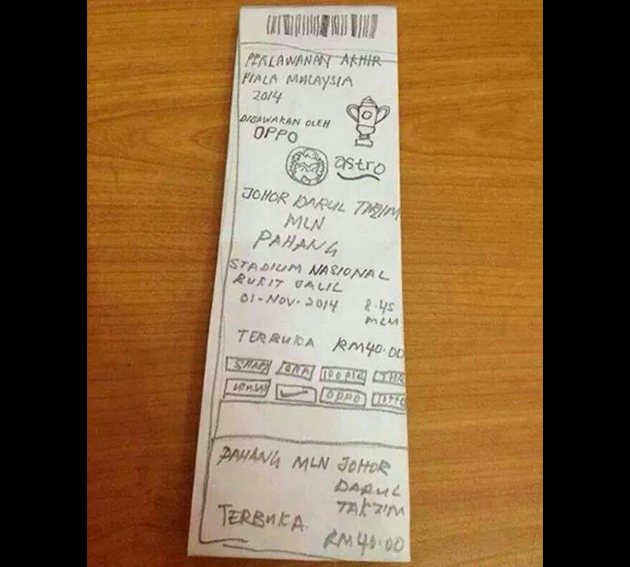 PERLAWANAN AKHIR
PIALA MALAYSIA
2014
DIBAWAKAN OLEH
OPPO
astro
JOHOR DARUL TAKZIM
MLN
PAHANG
STADIUM NASIONAL
BUKIT JALIL
01-NOV-2014 8.45
MLM
TERBUKA RM40.00
OPPO
PAHANG MLN JOHOR
DARUL
TAKZIM
TERBUKA
RM40.00